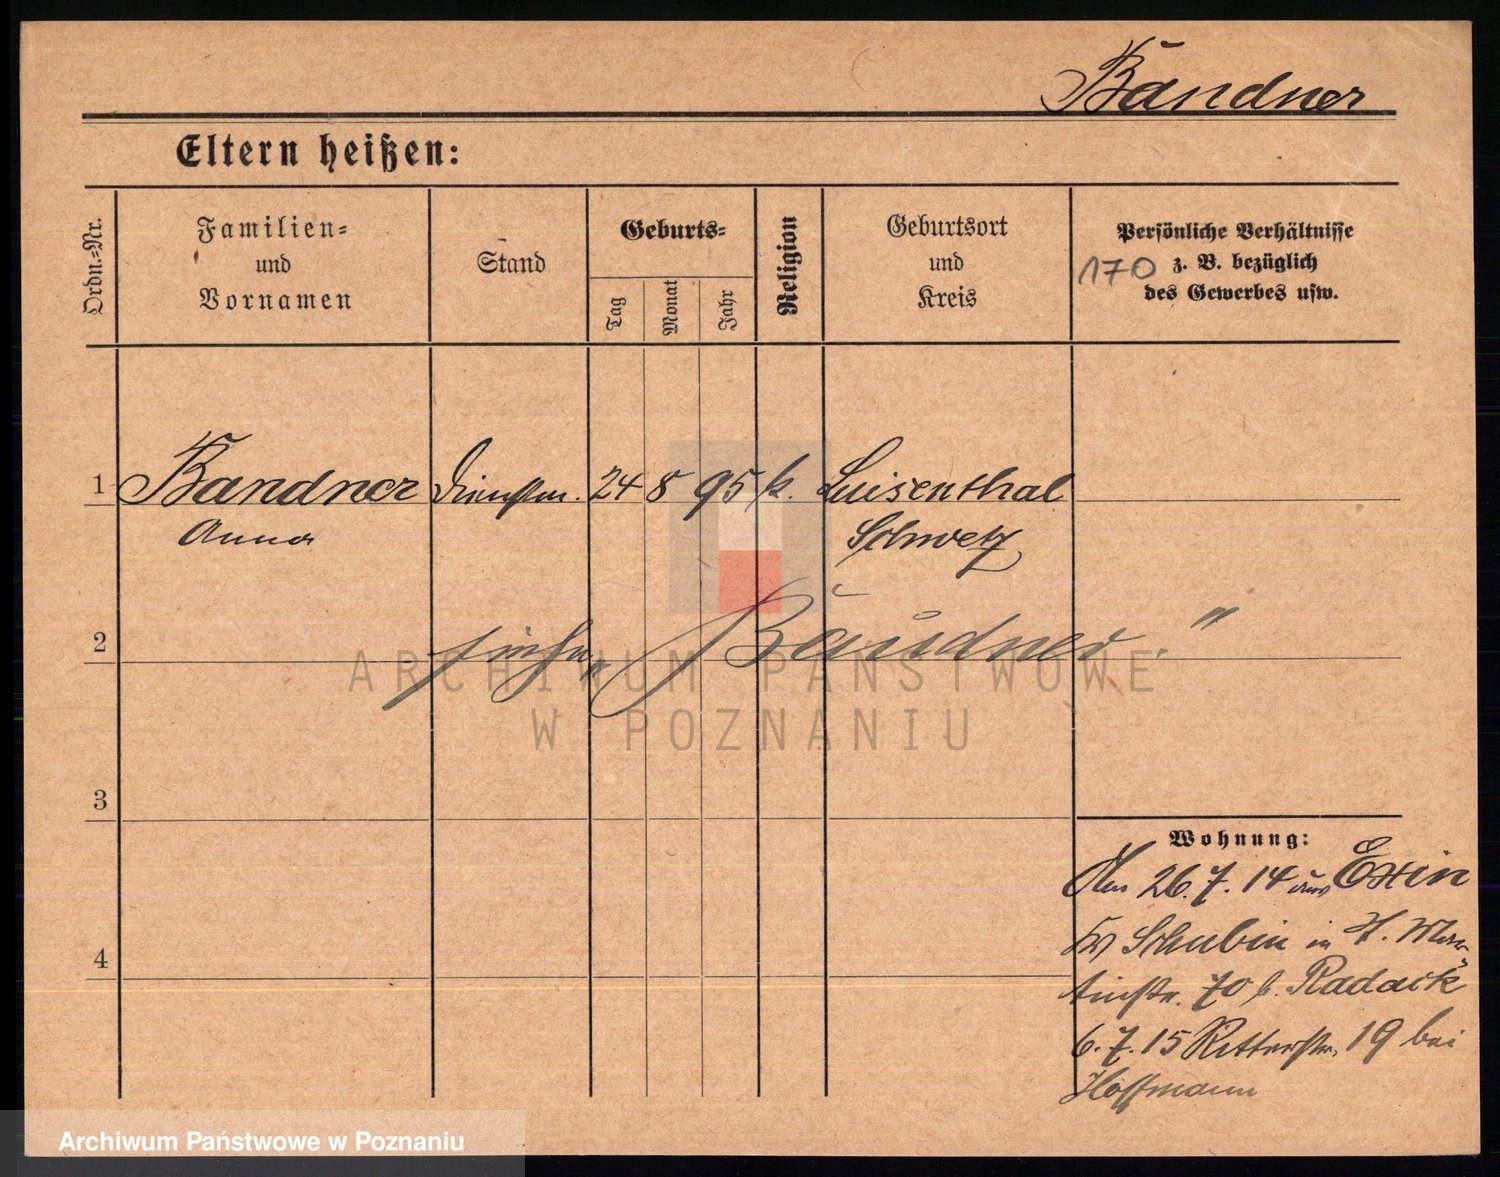 Bandner
Eltern heißen:
Ordn.-Nr.
Familien-
und
Vornamen
Stand
Geburts-
Tag
Monat
Jahr
Religion
Geburtsort
und
Kreis
Persönliche Verhältnisse
170 z. B. bezüglich
des Gewerbes usw.
1 Bandner Dienstm. 24 8 95 k. Luisenthal
Anna Schwetz
2 siehe „Baudner.“
3
4
Wohnung:
Am 26.7.14 aus Exin
Kr Schubin in St. Mar-
tinstr. 70 b. Radack
6.7.15 Ritterstr. 19 bei
Hoffmann
ARCHIWUM PAŃSTWOWE
W POZNANIU
Archiwum Państwowe w Poznaniu